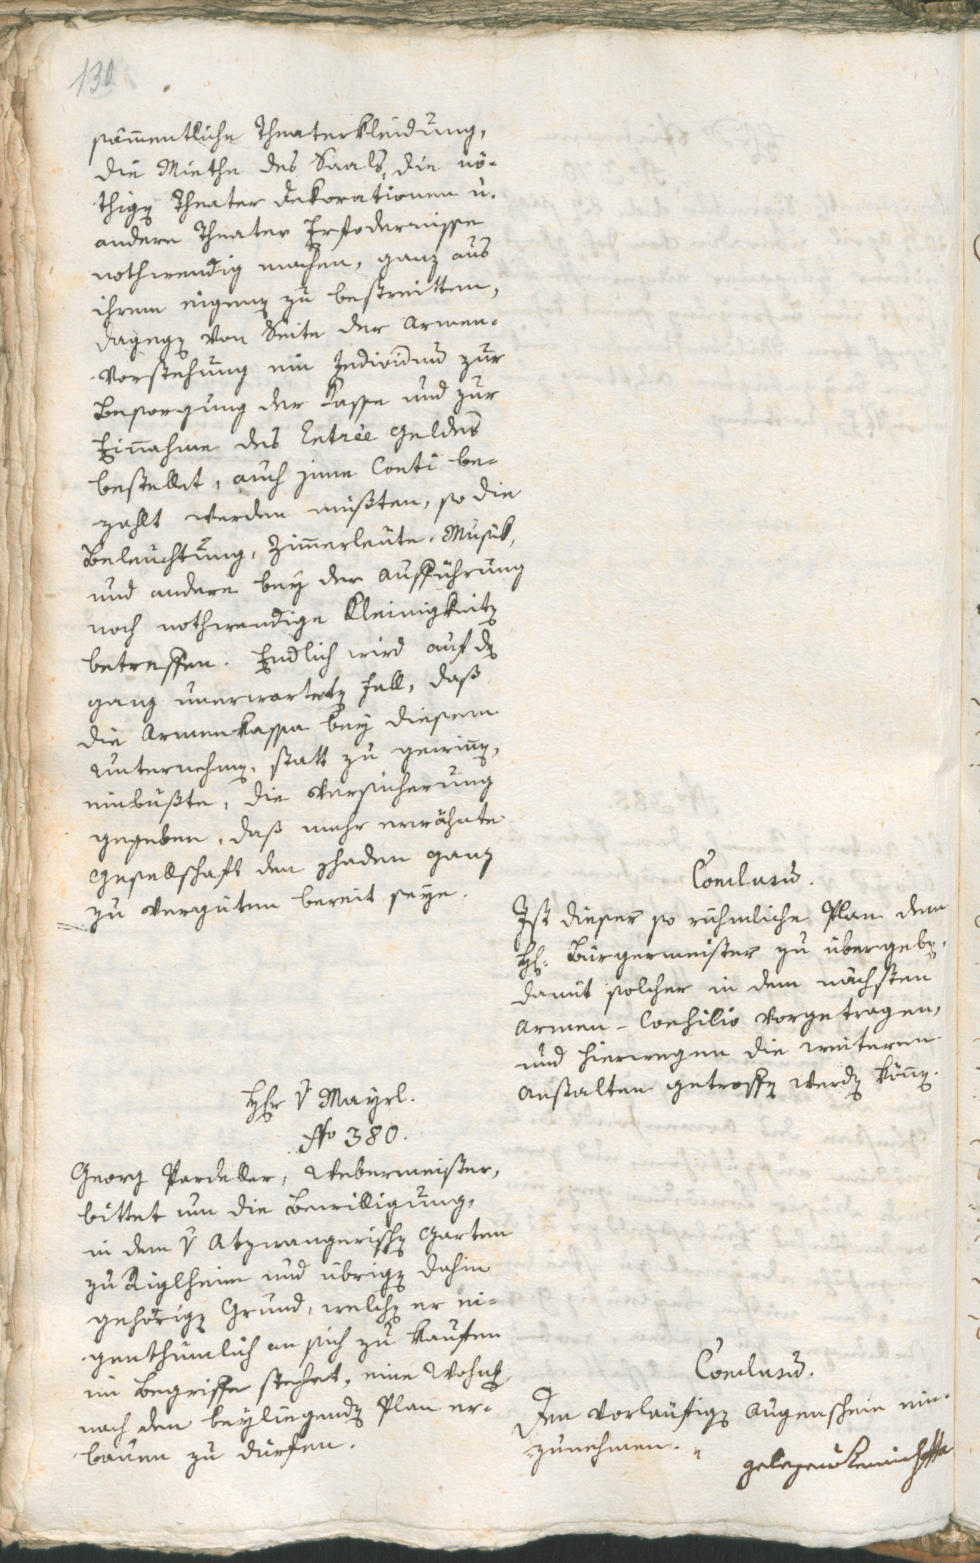 130
sämmentliche Theaterkleidung,
die Miethe des Saals, die nö-
thigen Theater Dekorationen u.
andere Theater Erfodernisse
nothwendig machen, ganz aus
ihrem eigenen zu bestreitten,
dagegen von Seite der Armen-
vorstehung ein Individuum zur
Besorgung der Kasse und zur
Einnahme des Entrée Geldes
bestellet, auch jene Conti be-
zahlt werden müßten, so die
Beleuchtung, Zimmerleute, Musik,
und andere bey der Aufführung
noch nothwendige Kleinigkeiten
betreffen. Endlich wird auf den
ganz unerwarteten Fall, daß
die Armenkassa bey diesem
Unternehmen, statt zu gewinnen,
einbüßte, die Versicherung
gegeben, daß mehr erwähnte
Gesellschaft den Schaden ganz
zu vergüten bereit seye.
Conclusum.
Ist dieser so rühmliche Plan dem
H: Bürgermeister zu übergeben,
damit solcher in dem nächsten
Armen-Consilio vorgetragen,
und hierwegen die weiteren
Anstalten getroffen werden können.
Herr v Mayrl.
No 380.
Georg Pardeller, Webermeister,
bittet um die Bewilligung,
in dem v Atzwangerischen Garten
zu Riglheim und übrigen dahin
gehörigen Grund, welchen er ei-
genthümlich an sich zu kaufen
im Begriffe stehet, eine Wohnung
nach dem beyliegenden Plan er-
bauen zu dürfen.
Conclusum.
Den vorläufigen Augenschein ein-
zunehmen.